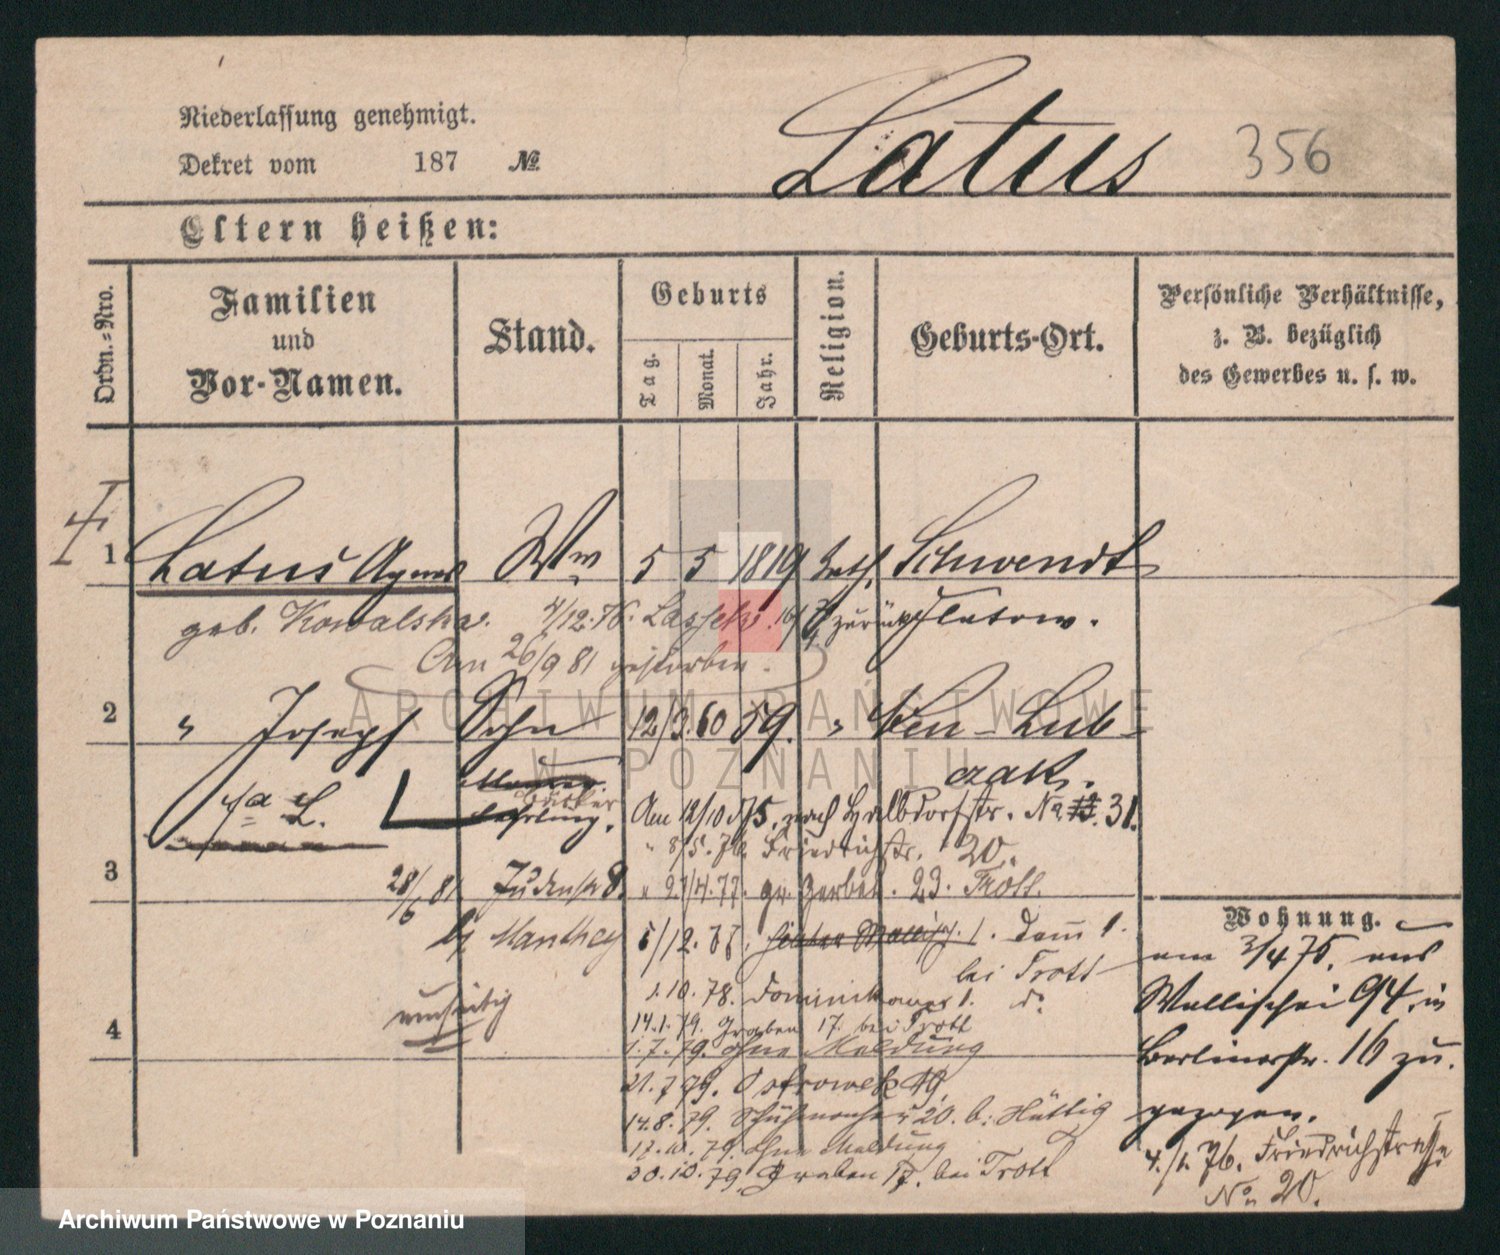 Niederlassung genehmigt.
Dekret vom 187 №
Latus 356
Eltern heißen:
Ordn.-Nro.
Familien
und
Vor-Namen.
Stand.
Geburts
Tag.
Monat.
Jahr.
Religion.
Geburts-Ort.
Persönliche Verhältnisse,
z. B. bezüglich
des Gewerbes u. s. w.
1 Latus Agnes Ww 5 5 1819 kath. Schwendt
geb. Kowalska. 4/12.76. zurück Flatow.
Am 26/9 81 gestorben.
2 " Joseph Sohn 12/3. 60 59. " Neu-Lub-
czak.
Bäcker
Lehrling.
Am 12/10 75. nach Halbdorfstr. No 31.
" 8/5. 76. Friedrichstr. 20.
3 28/6 81 Judenstr 8. " 21/4. 77. gr. Gerber. 23. Trött.
by Manthey 5/12. 77. Dom 1.
bei Trott
1.10.78. Dominikaner 1. do
umseitig
14.1.79. Graben 17. bei Trott
4
1.7.79. ohne Meldung
21.7.79. Ostrowek 19,
14.8.79. 20. b. Hüttig
17.10.79. ohne Meldung
30.10.79. Graben 17. bei Trott
Wohnung.
am 3/4 75. aus
Wallischei 94. in
Berlinerstr. 16 zu-
gezogen.
4./1. 76. Friedrichstrasse
No 20.
ARCHIWUM PAŃSTWOWE
W POZNANIU
Archiwum Państwowe w Poznaniu